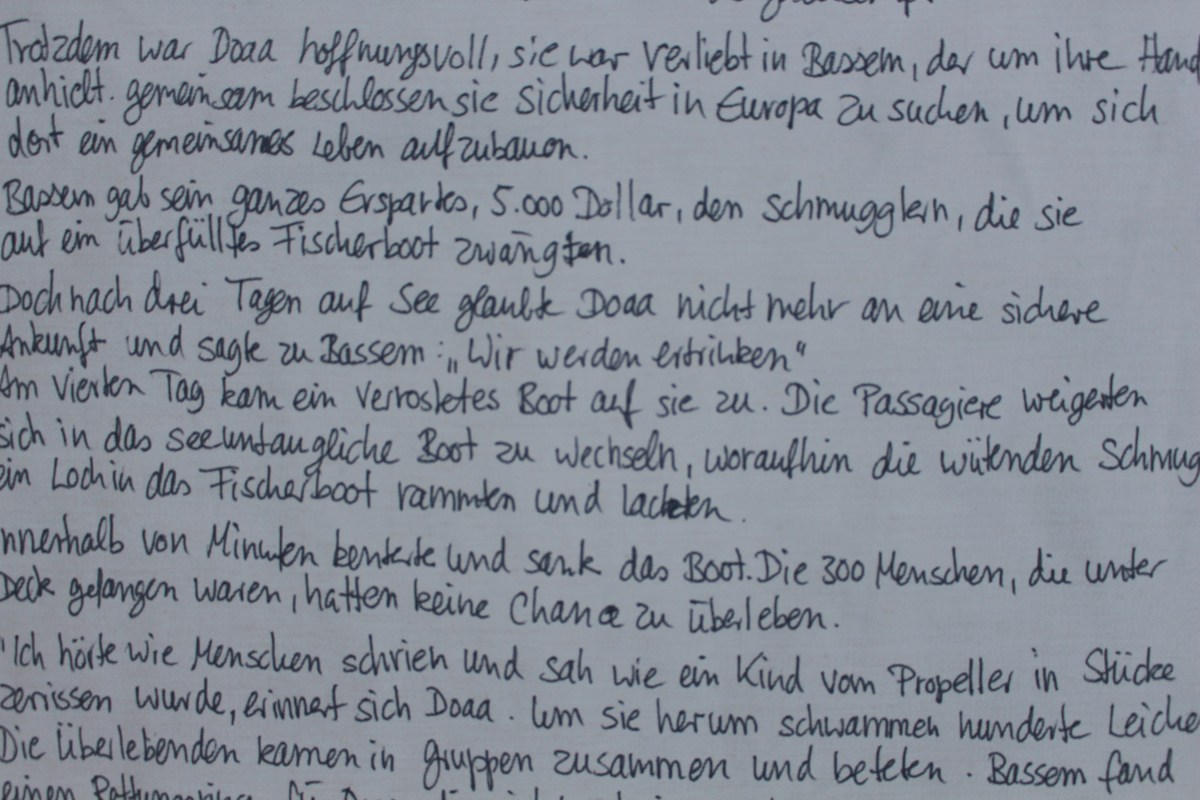 Trotzdem war Doaa hoffnungsvoll, sie war verliebt in Bassem, der um ihre Hand
anhielt. gemeinsam beschlossen sie Sicherheit in Europa zu suchen, um sich
dort ein gemeinsames Leben aufzubauen.
Bassem gab sein ganzes Erspartes, 5.000 Dollar, den Schmugglern, die sie
auf ein überfülltes Fischerboot zwängten.
Doch nach drei Tagen auf See glaubte Doaa nicht mehr an eine sichere
Ankunft und sagte zu Bassem: „Wir werden ertrinken“
Am vierten Tag kam ein verrostetes Boot auf sie zu. Die Passagiere weigerten
sich in das seeuntaugliche Boot zu wechseln, woraufhin die wütenden Schmug
ein Loch in das Fischerboot rammten und lachten.
nnerhalb von Minuten kenterte und sank das Boot. Die 300 Menschen, die unter
Deck gefangen waren, hatten keine Chance zu überleben.
"Ich hörte wie Menschen schrien und sah wie ein Kind vom Propeller in Stücke
zerissen wurde, erinnert sich Doaa. Um sie herum schwammen hunderte Leiche
Die Überlebenden kamen in gruppen zusammen und beteten. Bassem fand
einen